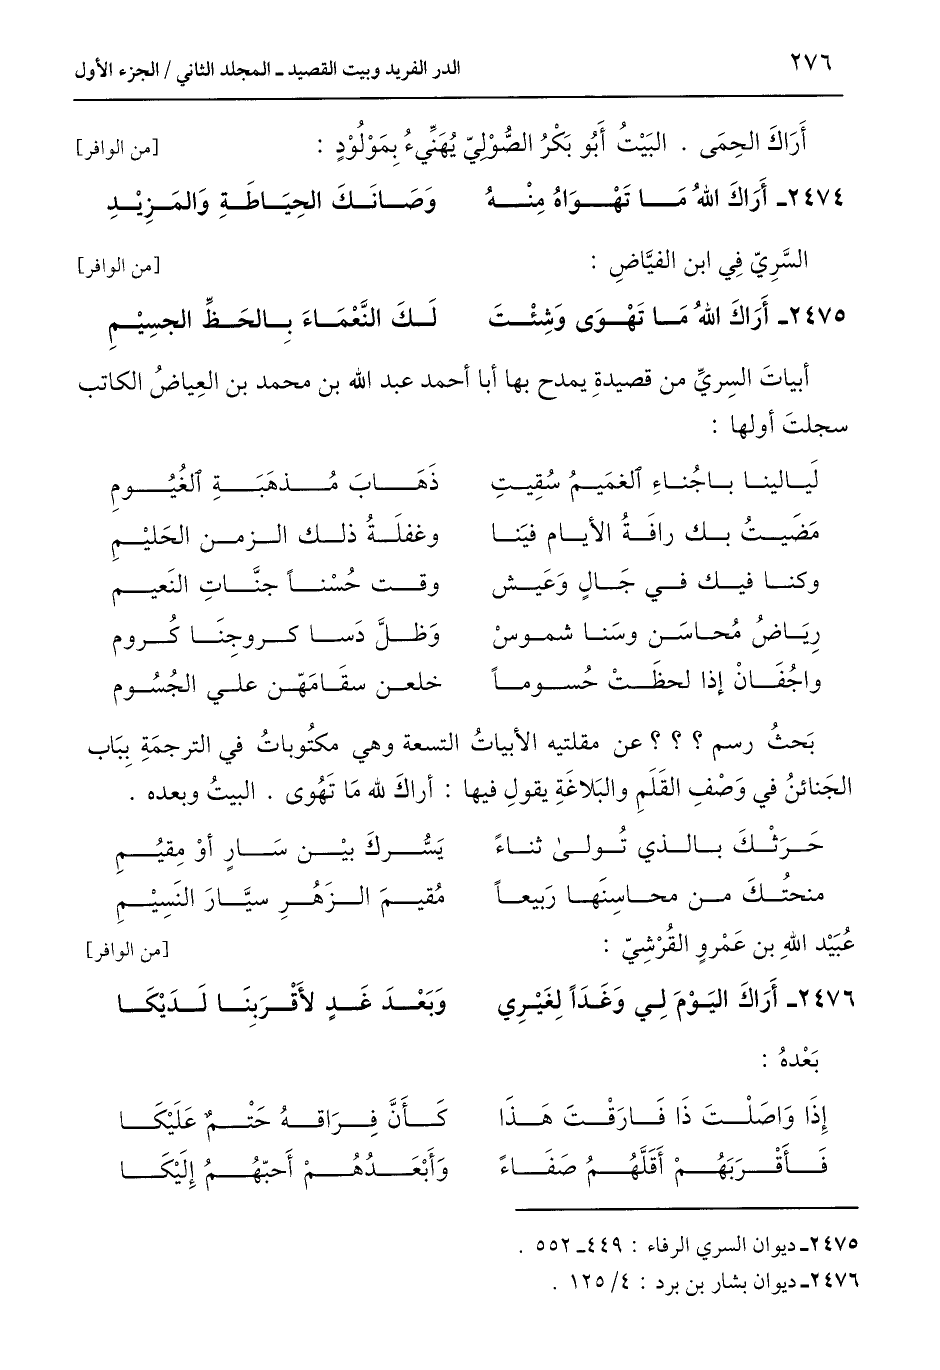 ٢٧٦ الدر الفريد وبيت القصيد ـ المجلد الثاني / الجزء الأول
أَرَاكَ الحِمَى . البَيْتُ أَبُو بَكْرُ الصُّوْلِيّ يُهَنِّيءُ بِمَوْلُوْدٍ : [من الوافر]
٢٤٧٤ـ أَرَاكَ اللهُ مَا تَهْوَاهُ مِنْهُ وَصَانَكَ الحِيَاطَةِ وَالمَزِيْدِ
السَّرِيّ فِي ابن الفَيَّاضِ : [من الوافر]
٢٤٧٥ـ أَرَاكَ اللهُ مَا تَهْوَى وَشِئْتَ لَكَ النَّعْمَاءَ بِالحَظِّ الجَسِيْمِ
أبياتَ السريِّ من قصيدةٍ يمدح بها أبا أحمد عبد الله بن محمد بن العياضُ الكاتب
سجلتَ أولها :
لَيالينا باجُناءِ الغميمُ سُقيتِ ذَهَابَ مُذهَبَةِ الغُيُومِ
مَضَيتُ بك رافةُ الأيام فيَنا وغفلَةُ ذلك الزمن الحَليْمِ
وكنا فيك في جَالٍ وَعَيش وقت حُسْناً جنَّاتِ النَعيم
ريَاضُ مُحاسَن وسَنا شموسْ وَظلَّ دَسا كروجنَا كُروم
واجُفَانْ إذا لحظَتْ حُسوماً خلعن سقَامَهّن علي الجُسُوم
بَحثُ رسم ؟ ؟ ؟ عن مقلتيه الأبياتُ التسعة وهي مكتوباتُ في الترجمَةِ بِبَاب
الجَنائنُ في وَصْفِ القَلَمِ والبَلاغَةِ يقولِ فيها : أراكَ لله مَا تَهُوى . البيتُ وبعده .
حَرَثْكَ بالذي تُولىٰ ثناءً يَسُّركَ بيْن سَارٍ أوْ مِقيُمِ
منحتُكَ من محاسِنَها رَبيعاً مُقيمَ الزَهُرِ سيَّارَ النَسِيْمِ
عُبَيْد اللهِ بن عَمْروٍ القُرْشِيّ : [من الوافر]
٢٤٧٦ـ أَرَاكَ اليَوْمَ لِي وَغَدَاً لِغَيْرِي وَبَعْدَ غَدٍ لأَقْرَبِنَا لَدَيْكَا
بَعْدهُ :
إِذَا وَاصَلْتَ ذَا فَارَقْتَ هَذَا كَأَنَّ فِرَاقهُ حَتْمٌ عَلَيْكَا
فَأَقْرَبَهُمْ أَقَلَّهُمُ صَفَاءً وَأَبْعَدُهُمْ أَحبّهُمُ إِلَيْكَا
٢٤٧٥ـ ديوان السري الرفاء : ٤٤٩ـ ٥٥٢ .
٢٤٧٦ـ ديوان بشار بن برد : ٤/ ١٢٥ .